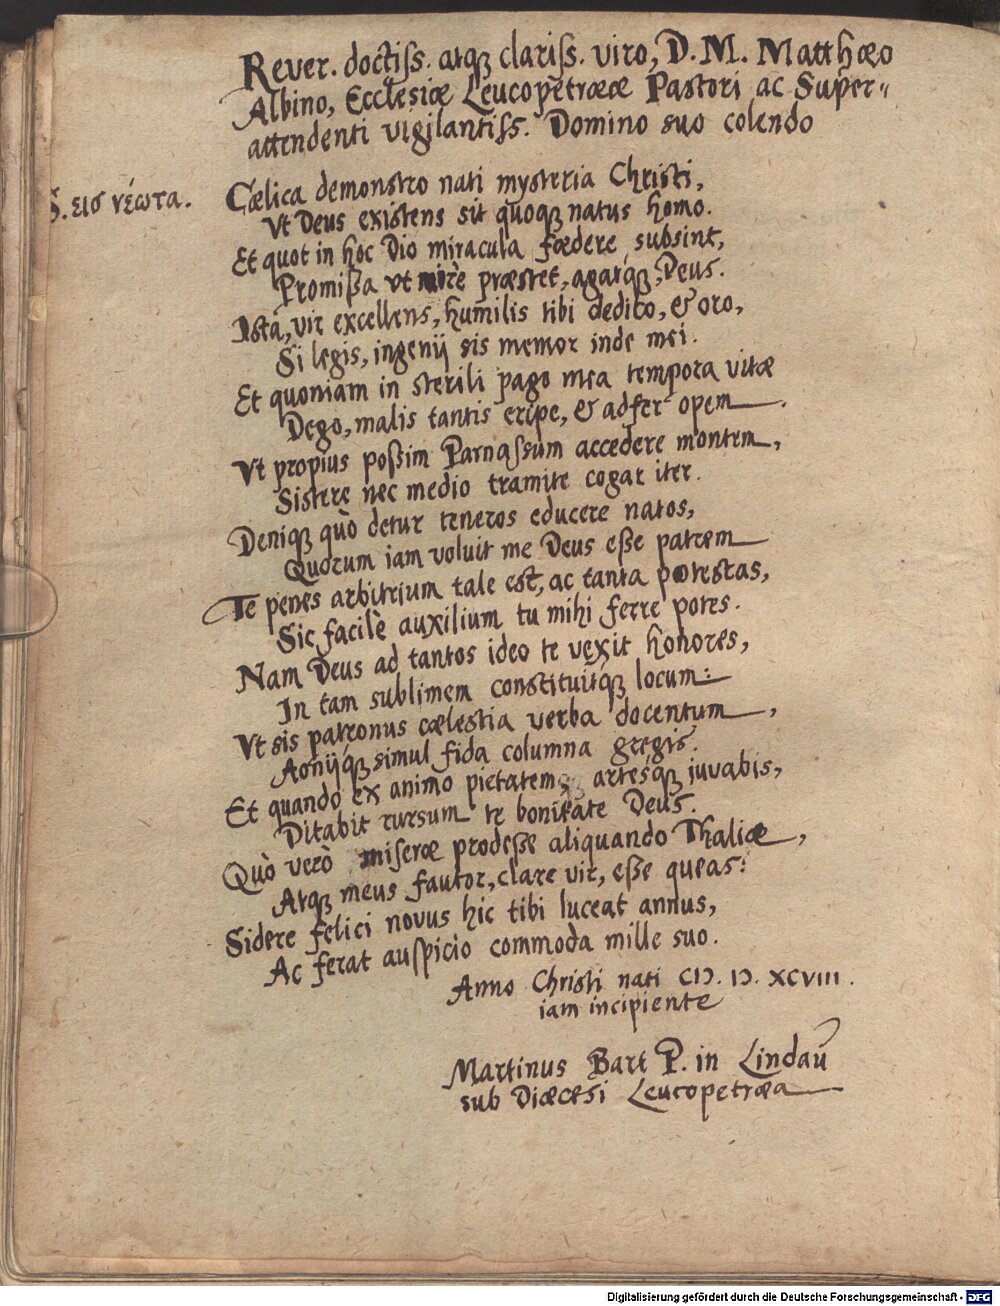 Rever. doctiss. atq; clariss. viro, D. M. Matthæo
Albino, Ecclesiæ Leucopetrææ Pastori ac Super-
attendenti vigilantiss. Domino suo colendo
S. εισ νέωτα.
Cælica demonstro nati mysteria Christi,
Vt Deus existens sit quoq; natus homo.
Et quot in hoc Dio miracula fœdere subsint,
Promißa vt mirè præstet, agatq;, Deus.
Ista, vir excellens, humilis tibi dedico, & oro,
Si legis, ingenij sis memor inde mei.
Et quoniam in sterili pago mea tempora vitæ
Dego, malis tantis eripe, & adfer opem.
Vt propius poßim Parnassum accedere montem,
Sistere nec medio tramite cogar iter.
Deniq; quò detur teneros educere natos,
Quorum iam voluit me Deus eße patrem
Te penes arbitrium tale est, ac tanta potestas,
Sic facilè auxilium tu mihi ferre potes.
Nam Deus ad tantos ideo te vexit honores,
In tam sublimem constituitq; locum:
Vt sis patronus cælestia verba docentum,
Aonijq; simul fida columna gregis.
Et quando ex animo pietatem, artesq; juvabis,
Ditabit rursum te bonitate Deus.
Quò verò miseræ prodeße aliquando Thaliæ,
Atq; meus fautor, clare vir, eße queas:
Sidere felici novus hic tibi luceat annus,
Ac ferat auspicio commoda mille suo.
Anno Christi nati CIↃ. IↃ. XCVIII.
iam incipiente
Martinus Bart P. in Lindaŭ
sub Diæcesi Leucopetræa
Digitalisierung gefördert durch die Deutsche Forschungsgemeinschaft - DFG